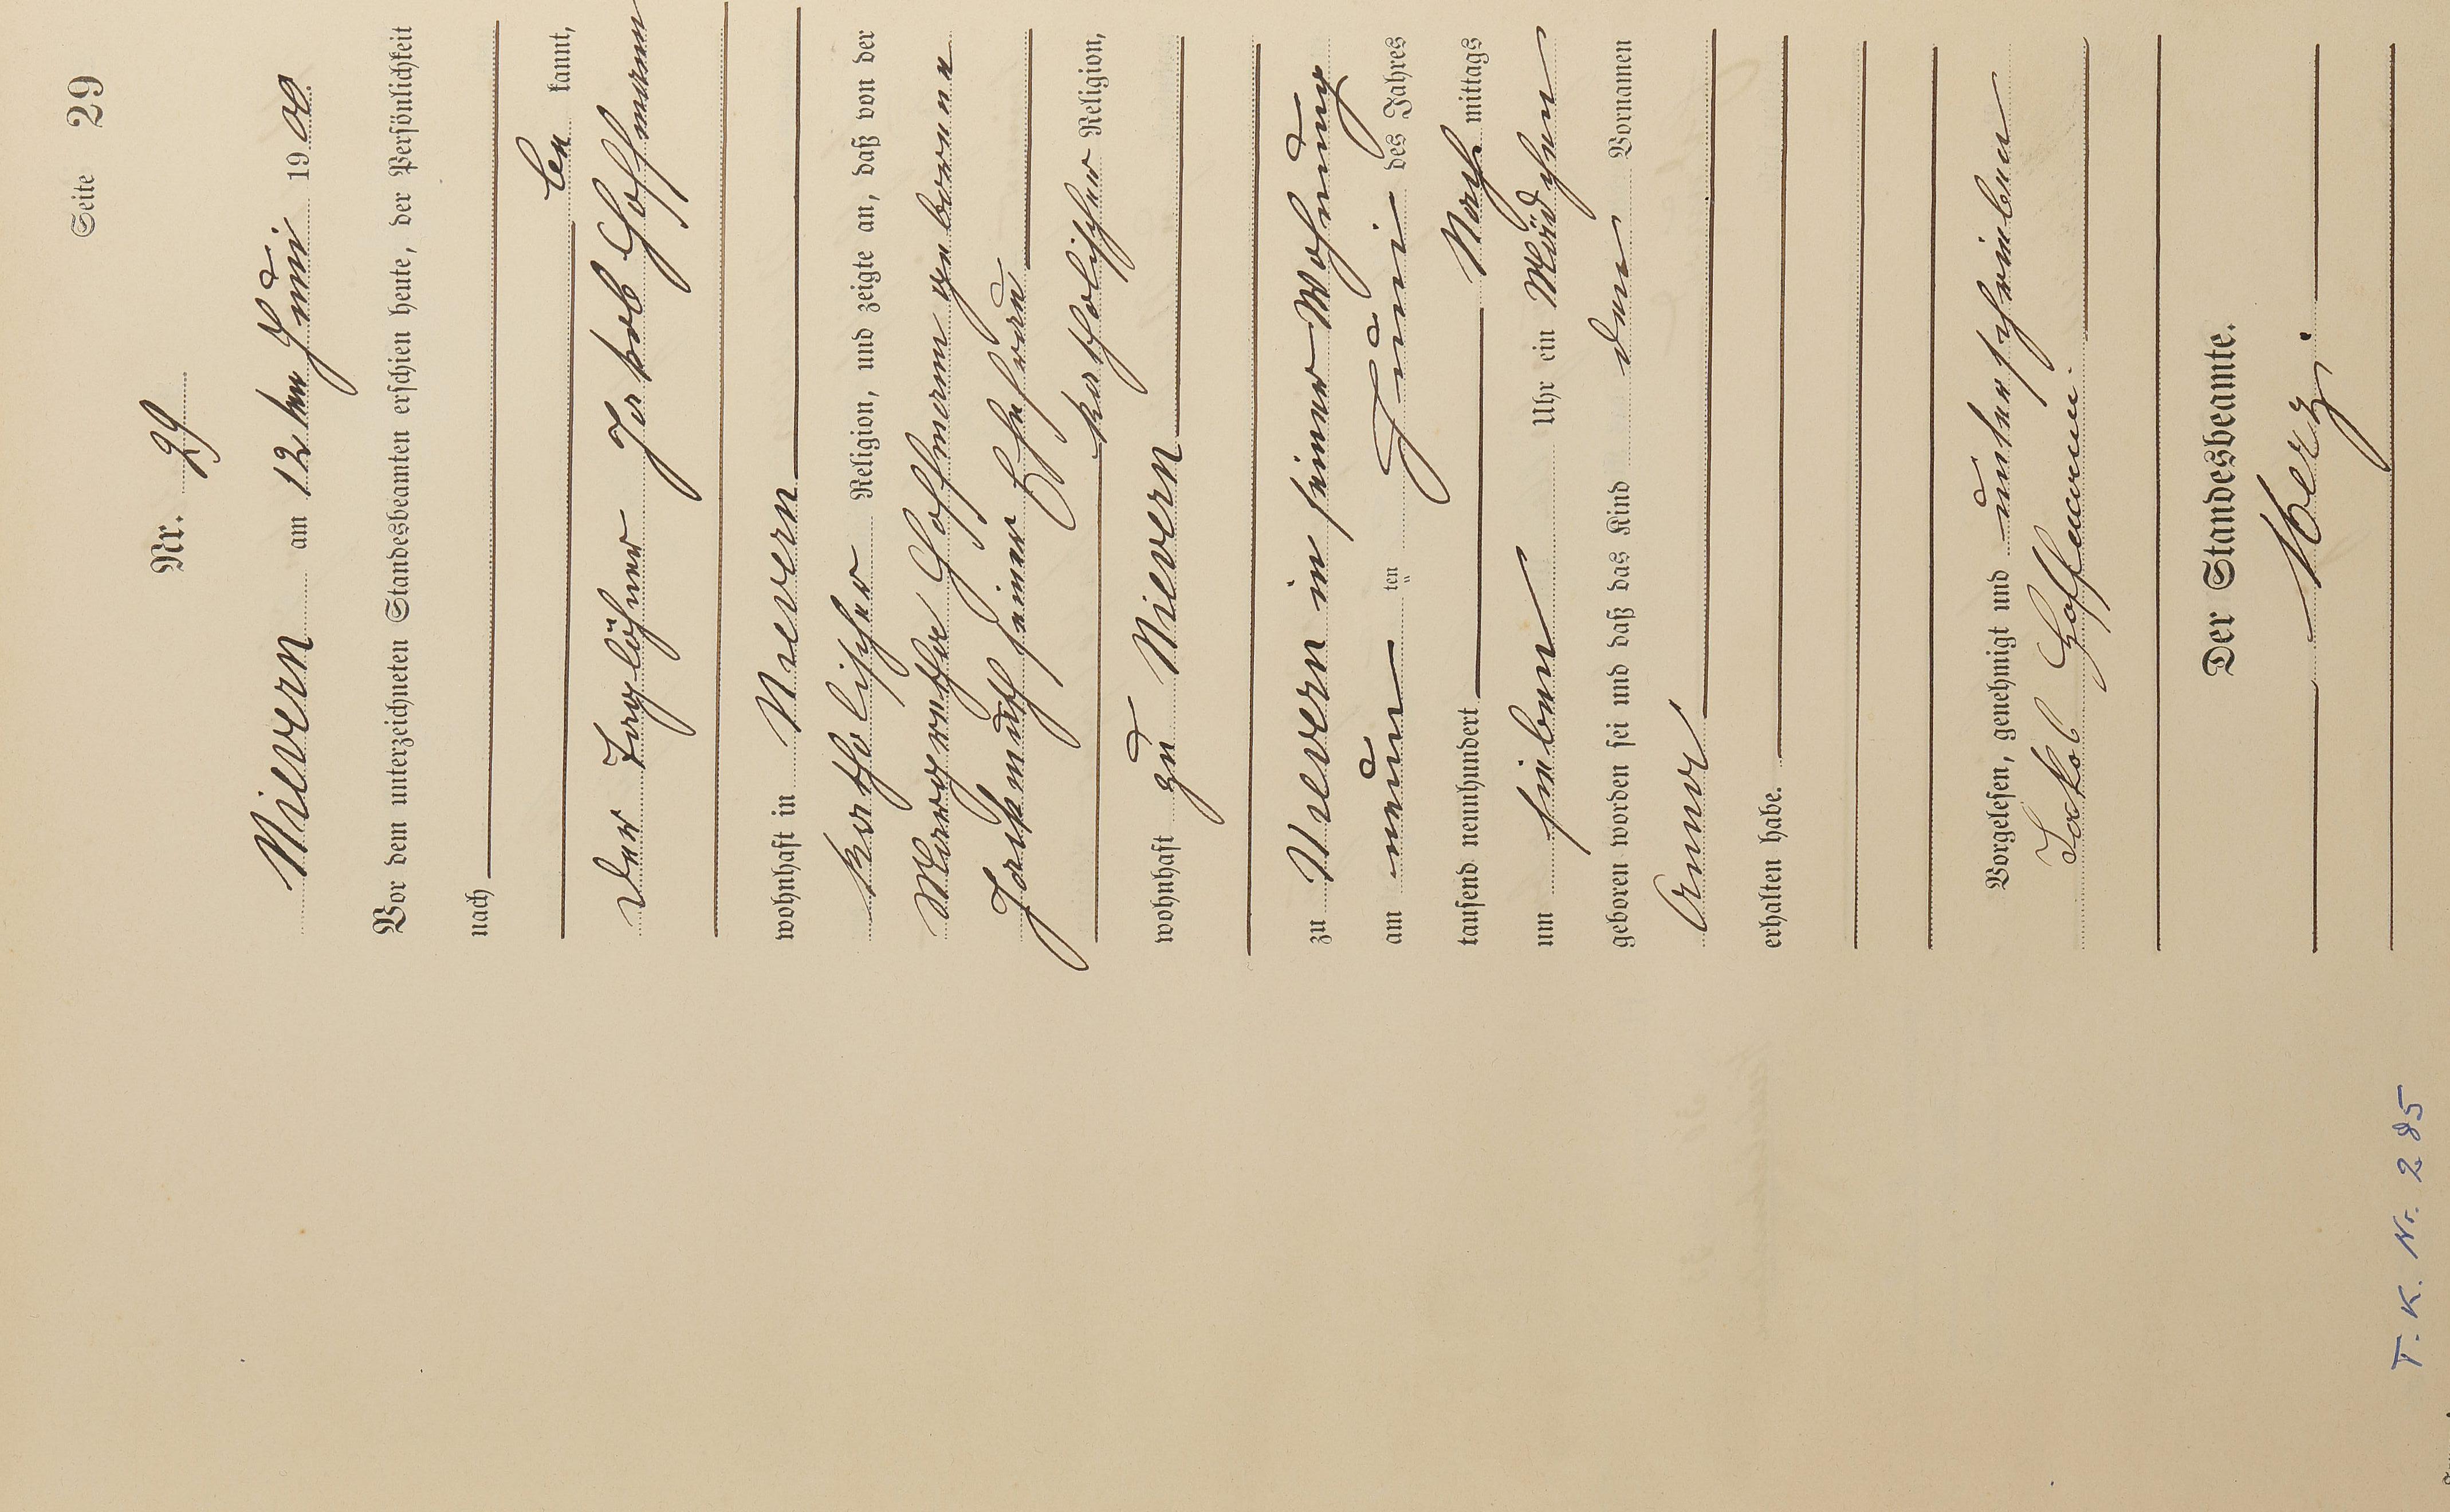 Seite 29
Nr. 29
Nievern am 12ten Juni 1900
Vor dem unterzeichneten Standesbeamten erschien heute, der Persönlichkeit
nach
be kannt,
der Taglöhner Jakob Hoffmann
wohnhaft in Nievern
katholischer Religion, und zeigte an, daß von der
Margaretha Hoffmann geborenen
seiner Ehefrau
katholischer Religion,
wohnhaft zu Nievern
zu Nievern in seiner Wohnung
am neun ten Juni des Jahres
tausend neunhundert Nach mittags
um sieben Uhr ein Mädchen
geboren worden sei und daß das Kind den Vornamen
Anna
erhalten habe.
Vorgelesen, genehmigt und unterschrieben
Jakob Hoffmann.
Der Standesbeamte.
T. K. Nr. 285